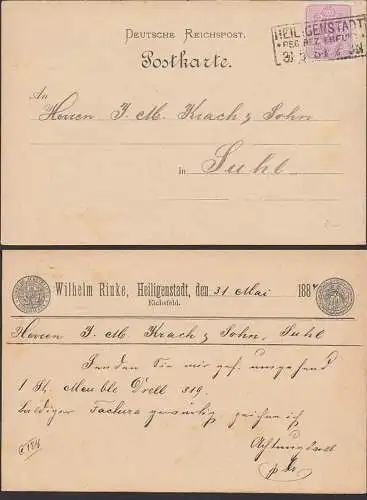 DEUTSCHE REICHSPOST.
Postkarte.
HEILIGENSTADT
REG. BEZ. ERFURT
An
Herren J. M. Krach & Sohn
in
Suhl
Wilhelm Rinke, Heiligenstadt, den 31 Mai 188
Eichsfeld.
Herren J. M. Krach & Sohn, Suhl
Senden Sie mir gef. umgehend
1 St. Meuble Drell 319.
baldiger Factura gewärtig zeichne ich
Achtungsvoll